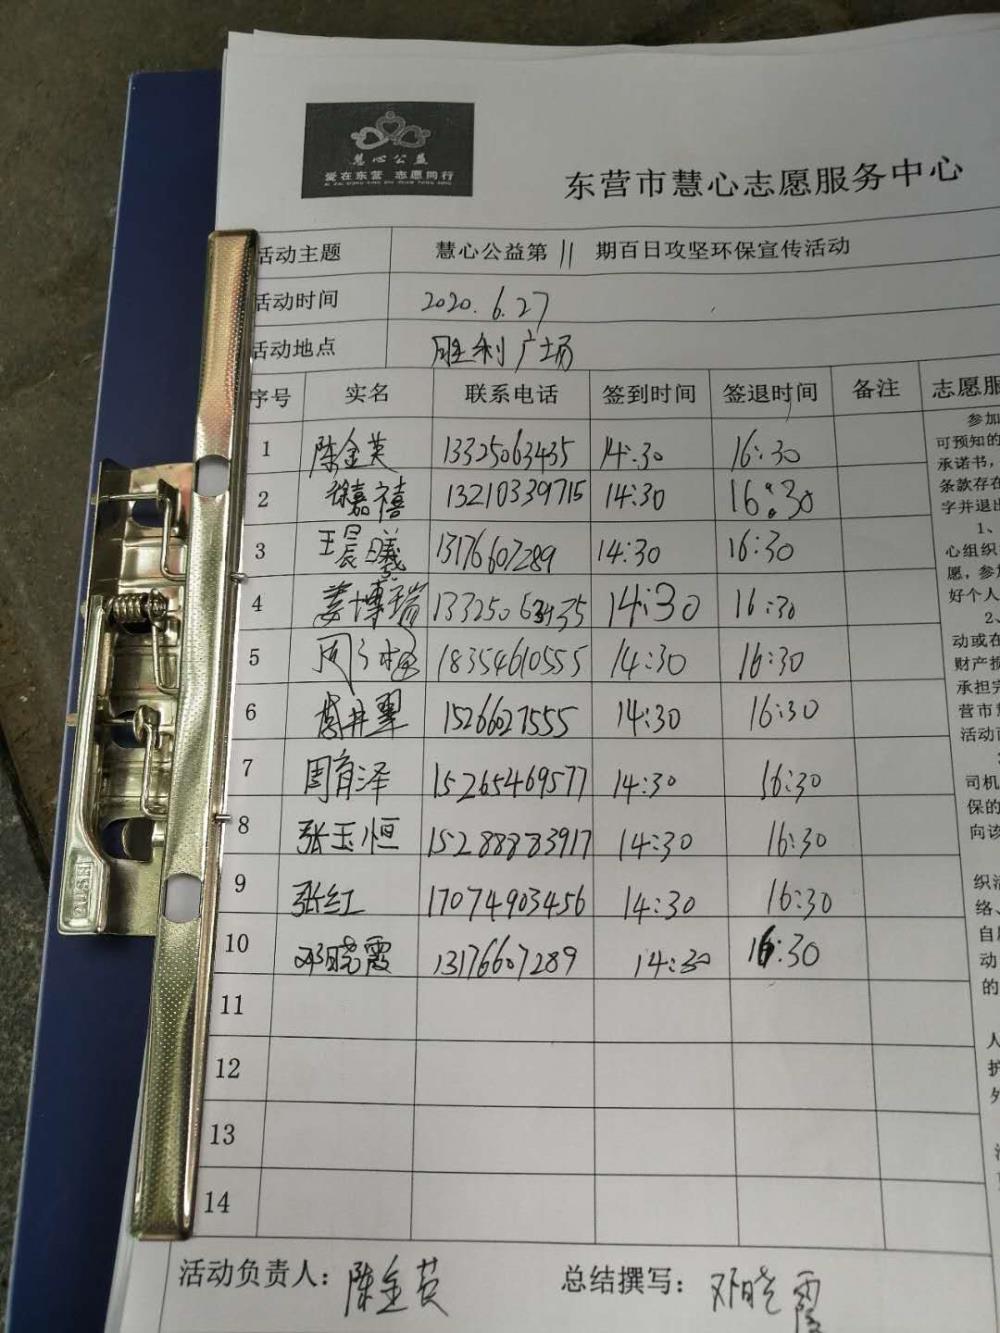 慧心公益
爱在东营 志愿同行
东营市慧心志愿服务中心
活动主题 慧心公益第11期百日攻坚环保宣传活动
活动时间 2020.6.27
活动地点 胜利广场
序号 实名 联系电话 签到时间 签退时间 备注 志愿服
1 陈金英 13325063435 14:30 16:30
2 徐嘉禧 13210339715 14:30 16:30
3 王晨曦 13176607289 14:30 16:30
4 姜博瑞 13325063435 14:30 16:30
5 周 18354610555 14:30 16:30
6 15266027555 14:30 16:30
7 周育泽 15265469577 14:30 16:30
8 张玉恒 15288883917 14:30 16:30
9 张红 17074903456 14:30 16:30
10 邓晓霞 13176607289 14:30 16:30
11
12
13
14
参加
可预知的
承诺书,
条款存在
字并退出
1、
心组织
愿,参加
好个人
2、
动或在
财产损
承担完
营市慧
活动而
司机
保的
向该
织活
络、
自愿
动
的
人
护
外
活动负责人:陈金英 总结撰写:邓晓霞
PUSH